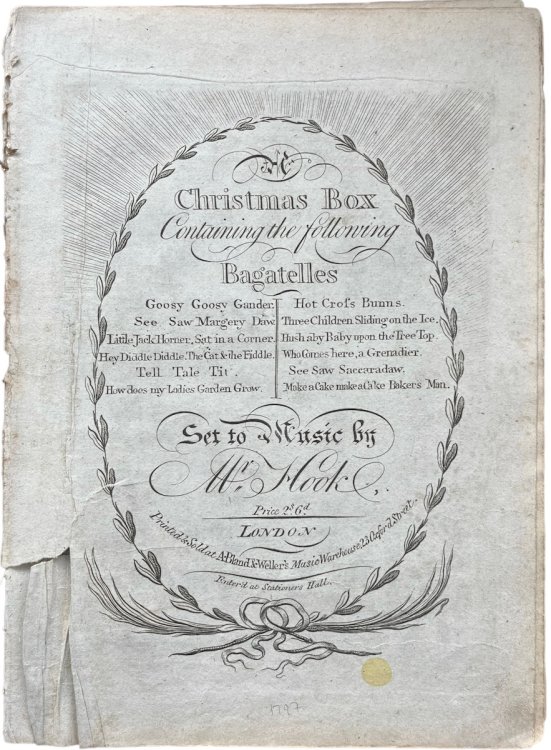 The
Christmas Box
Containing the following
Bagatelles
Goosy Goosy Gander.
See Saw Margery Daw.
Little Jack Horner, Sat in a Corner.
Hey Diddle Diddle. The Cat & the Fiddle.
Tell Tale Tit.
How does my Ladies Garden Grow.
Hot Croſs Bunns.
Three Children Sliding on the Ice.
Hush aby Baby upon the Tree Top.
Who Comes here, a Grenadier.
See Saw Saccaradaw.
Make a Cake make a Cake Bakers Man.
Set to Music by
Mr. Hook,
Price 2s. 6d
LONDON
Printed & Sold at A. Bland & Weller's Music Warehouse, 23 Oxford Street.
Enter'd at Stationers Hall.
1797